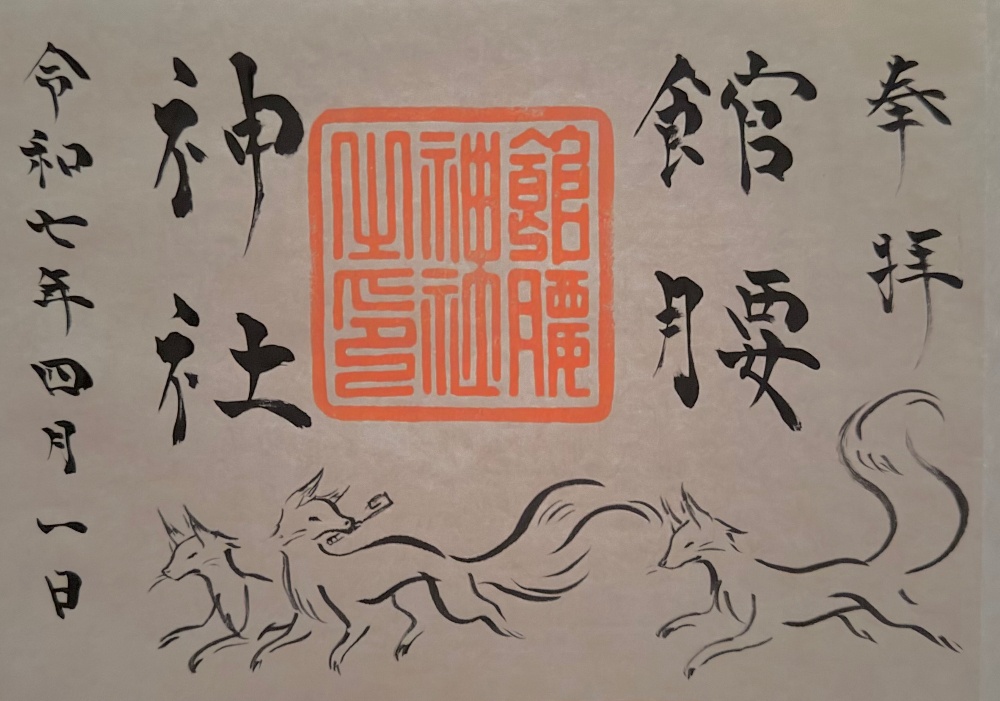 奉拝
館腰
館腰神社之印
神社
令和七年四月一日